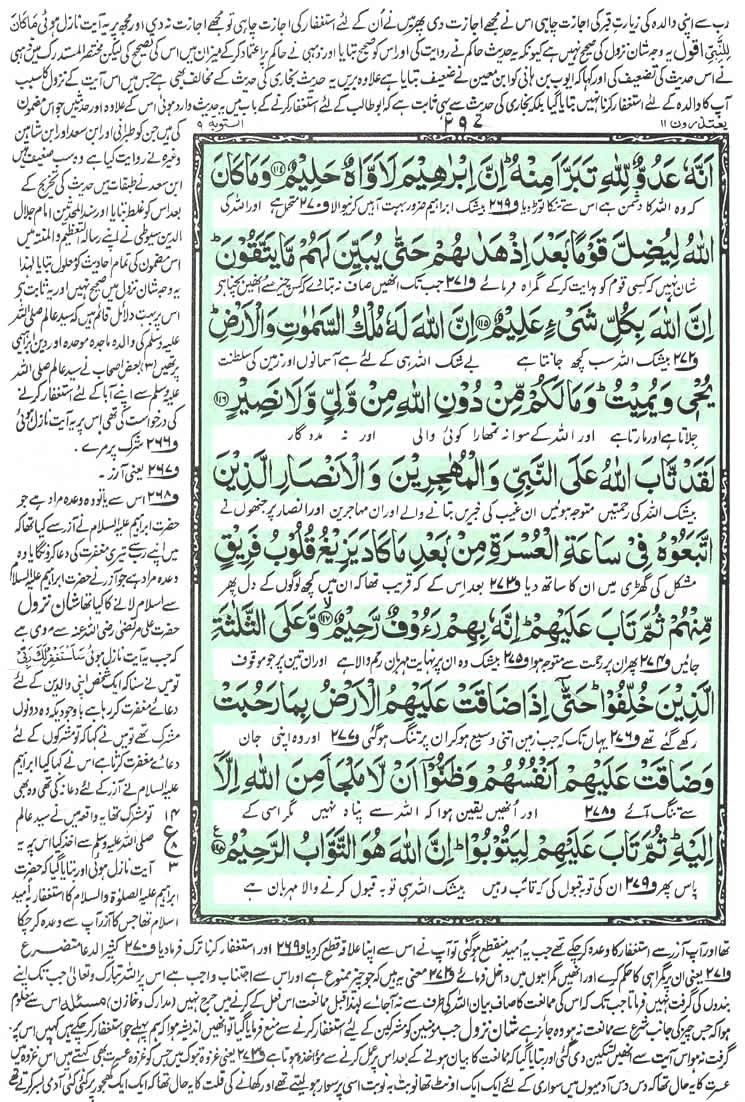 رب سے اپنی والدہ کی زیارتِ قبر کی اجازت چاہی اس نے مجھے اجازت دی پھر میں نے اُن کے لئے استغفار کی اجازت چاہی تو مجھے اجازت نہ دی اور مجھ پر یہ آیت نازل ہوئی مَاکَانَ
لِلنَّبِیِّ اقول یہ وجہ شانِ نزول کی صحیح نہیں ہے کیونکہ یہ حدیث حاکم نے روایت کی اور اس کو صحیح بتایا اور ذہبی نے حاکم پر اعتماد کرکے میزان میں اس کی تصحیح کی لیکن مختصر المستدرک میں ذہبی
نے اس حدیث کی تضعیف کی اور کہا کہ ایوب بن ہانی کو ابن معین نے ضعیف بتایا ہے علاوہ بریں یہ حدیث بخاری کی حدیث کے مخالف بھی ہے جس میں اس آیت کے نزول کا سبب
آپ کا والدہ کے لئے استغفار کرنا نہیں بتایا گیا بلکہ بخاری کی حدیث سے یہی ثابت ہے کہ ابوطالب کے لئے استغفار کرنے کے باب میں یہ حدیث وارد ہوئی اس کے علاوہ اور حدیثیں جو اس مضمون
یعتذرون ۱۱
۲۹۷
التوبة ۹
اَنَّهٗ عَدُوٌّ لِّلّٰهِ تَبَرَّاَ مِنْهُؕ اِنَّ اِبْرٰهِیْمَ لَاَوَّاهٌ حَلِیْمٌ ۝۱۱۴ وَ مَا كَانَ
کہ وہ اللہ کا دشمن ہے اس سے تنکا توڑ دیا و۲۶۹ بیشک ابراہیم ضرور بہت آہیں کرنیوالا و۲۷۰ متحمل ہے اور اللہ کی
اللّٰهُ لِیُضِلَّ قَوْمًۢا بَعْدَ اِذْ هَدٰىهُمْ حَتّٰى یُبَیِّنَ لَهُمْ مَّا یَتَّقُوْنَؕ
شان نہیں کہ کسی قوم کو ہدایت کرکے گمراہ فرمائے و۲۷۱ جب تک انھیں صاف نہ بتادے کہ کس چیز سے انھیں بچنا چاہیے
اِنَّ اللّٰهَ بِكُلِّ شَیْءٍ عَلِیْمٌ ۝۱۱۵ اِنَّ اللّٰهَ لَهٗ مُلْكُ السَّمٰوٰتِ وَ الْاَرْضِؕ
و۲۷۲ بیشک اللہ سب کچھ جانتا ہے بے شک اللہ ہی کے لئے ہے آسمانوں اور زمین کی سلطنت
یُحْیٖ وَ یُمِیْتُؕ وَ مَا لَكُمْ مِّنْ دُوْنِ اللّٰهِ مِنْ وَّلِیٍّ وَّ لَا نَصِیْرٍ ۝۱۱۶
جلاتا ہے اور مارتا ہے اور اللہ کے سوا نہ تمہارا کوئی والی اور نہ مددگار
لَقَدْ تَّابَ اللّٰهُ عَلَى النَّبِیِّ وَ الْمُهٰجِرِیْنَ وَ الْاَنْصَارِ الَّذِیْنَ
بیشک اللہ کی رحمتیں متوجہ ہوئیں ان غیب کی خبریں بتانے والے اور ان مہاجرین اور انصار پر جنھوں نے
اتَّبَعُوْهُ فِیْ سَاعَةِ الْعُسْرَةِ مِنْۢ بَعْدِ مَا كَادَ یَزِیْغُ قُلُوْبُ فَرِیْقٍ
مشکل کی گھڑی میں ان کا ساتھ دیا و۲۷۳ بعد اس کے کہ قریب تھا کہ ان میں کچھ لوگوں کے دل پھر
مِّنْهُمْ ثُمَّ تَابَ عَلَیْهِمْؕ اِنَّهٗ بِهِمْ رَءُوْفٌ رَّحِیْمٌ ۝۱۱۷ۙ وَّ عَلَى الثَّلٰثَةِ
جائیں و۲۷۴ پھر ان پر رحمت سے متوجہ ہوا و۲۷۵ بیشک وہ ان پر نہایت مہربان رحم والا ہے اور ان تین پر جو موقوف
الَّذِیْنَ خُلِّفُوْاؕ حَتّٰۤى اِذَا ضَاقَتْ عَلَیْهِمُ الْاَرْضُ بِمَا رَحُبَتْ
رکھے گئے تھے و۲۷۶ یہاں تک کہ جب زمین اتنی وسیع ہو کر ان پر تنگ ہوگئی و۲۷۷ اور وہ اپنی جان
وَ ضَاقَتْ عَلَیْهِمْ اَنْفُسُهُمْ وَ ظَنُّوْۤا اَنْ لَّا مَلْجَاَ مِنَ اللّٰهِ اِلَّاۤ
سے تنگ آئے و۲۷۸ اور انھیں یقین ہوا کہ اللہ سے پناہ نہیں مگر اسی کے
اِلَیْهِؕ ثُمَّ تَابَ عَلَیْهِمْ لِیَتُوْبُوْاؕ اِنَّ اللّٰهَ هُوَ التَّوَّابُ الرَّحِیْمُ ۝۱۱۸
پاس پھر و۲۷۹ ان کی توبہ قبول کی کہ تائب رہیں بیشک اللہ ہی توبہ قبول کرنے والا مہربان ہے
کی ہیں جن کو طبرانی اور ابن سعد اور ابن شاہین
وغیرہ نے روایت کیا ہے وہ سب ضعیف ہیں
ابن سعد نے طبقات میں حدیث کی تخریج کے
بعد اس کو غلط بتایا اور سند المحدثین امام جلال
الدین سیوطی نے اپنے رسالہ التعظیم والمنتہ میں
اس مضمون کی تمام احادیث کو معلول بتایا لہٰذا
یہ وجہ شانِ نزول میں صحیح نہیں اور یہ ثابت ہے
اس پر بہت دلائل قائم ہیں کہ سید عالم صلی اللہ
علیہ وسلم کی والدہ ماجدہ موحدہ اور دینِ ابراہیمی
پر تھیں (۳) بعض اصحاب نے سید عالم صلی اللہ
علیہ وسلم سے اپنے آبا کے لئے استغفار کرنے
کی درخواست کی تھی اس پر یہ آیت نازل ہوئی
و۲۶۶ شرک پر مرے۔
و۲۶۷ یعنی آزر۔
و۲۶۸ اس سے یا تو وہ وعدہ مراد ہے جو
حضرت ابراہیم علیہ السلام نے آزر سے کیا تھا کہ
میں اپنے رب سے تیری مغفرت کی دعا کروں گا یا وہ
وعدہ مراد ہے جو آزر نے حضرت ابراہیم علیہ السلام
سے اسلام لانے کا کیا تھا شانِ نزول
حضرت علی مرتضیٰ رضی اللہ عنہ سے مروی ہے
کہ جب یہ آیت نازل ہوئی سَاَسْتَغْفِرُ لَکَ رَبِّیْ
تو میں نے سنا کہ ایک شخص اپنے والدین کے لئے
دعائے مغفرت کر رہا ہے باوجودیکہ وہ دونوں
مشرک تھے تو میں نے کہا کہ تو مشرکوں کے لئے
دعائے مغفرت کرتا ہے اس نے کہا کیا ابراہیم
علیہ السلام نے آزر کے لئے دعا نہ کی تھی وہ بھی
تو مشرک تھا یہ واقعہ میں نے سید عالم
صلی اللہ علیہ وسلم سے ذکر کیا اس پر یہ
آیت نازل ہوئی اور بتایا گیا کہ حضرت
ابراہیم علیہ الصلوٰۃ والسلام کا استغفار بہ امید
اسلام تھا جس کا آزر آپ سے وعدہ کرچکا
۱۴
ع
۸
۳
تھا اور آپ آزر سے استغفار کا وعدہ کرچکے تھے جب یہ امید منقطع ہوگئی تو آپ نے اس سے اپنا علاقہ قطع کردیا و۲۶۹ اور استغفار کرنا ترک فرما دیا و۲۷۰ کثیر الدعا متضرع
و۲۷۱ یعنی ان پر گمراہی کا حکم کرے اور انھیں گمراہوں میں داخل فرمائے و۲۷۲ معنی یہ ہیں کہ جو چیز ممنوع ہے اور اس سے اجتناب واجب ہے اس پر اللہ تبارک و تعالیٰ جب تک اپنے
بندوں کی گرفت نہیں فرماتا جب تک کہ اس کی ممانعت کا صاف بیان اللہ کی طرف سے نہ آجائے لہٰذا قبل ممانعت اس فعل کے کرنے میں حرج نہیں (مدارک وخازن) مسئلہ اس سے معلوم
ہوا کہ جس چیز کی جانب شرع سے ممانعت نہ ہو وہ جائز ہے شانِ نزول جب مومنین کو مشرکین کے لئے استغفار کرنے سے منع فرمایا گیا تو انھیں اندیشہ ہوا کہ ہم پہلے جو استغفار کرچکے ہیں کہیں اس پر
گرفت نہ ہو اس آیت سے انھیں تسکین دی گئی اور بتایا گیا کہ ممانعت کا بیان ہونے کے بعد اس پر عمل کرنے سے مؤاخذہ ہوتا ہے و۲۷۳ یعنی غزوۂ تبوک میں جس کو غزوۂ عسرت بھی کہتے ہیں اس غزوہ میں
عسرت کا یہ حال تھا کہ دس دس آدمیوں میں سواری کے لئے ایک ایک اونٹ تھا نوبت بہ نوبت اسی پر سوار ہولیتے تھے اور کھانے کی قلت کا یہ حال تھا کہ ایک ایک کھجور پر کئی کئی آدمی بسر کرتے تھے